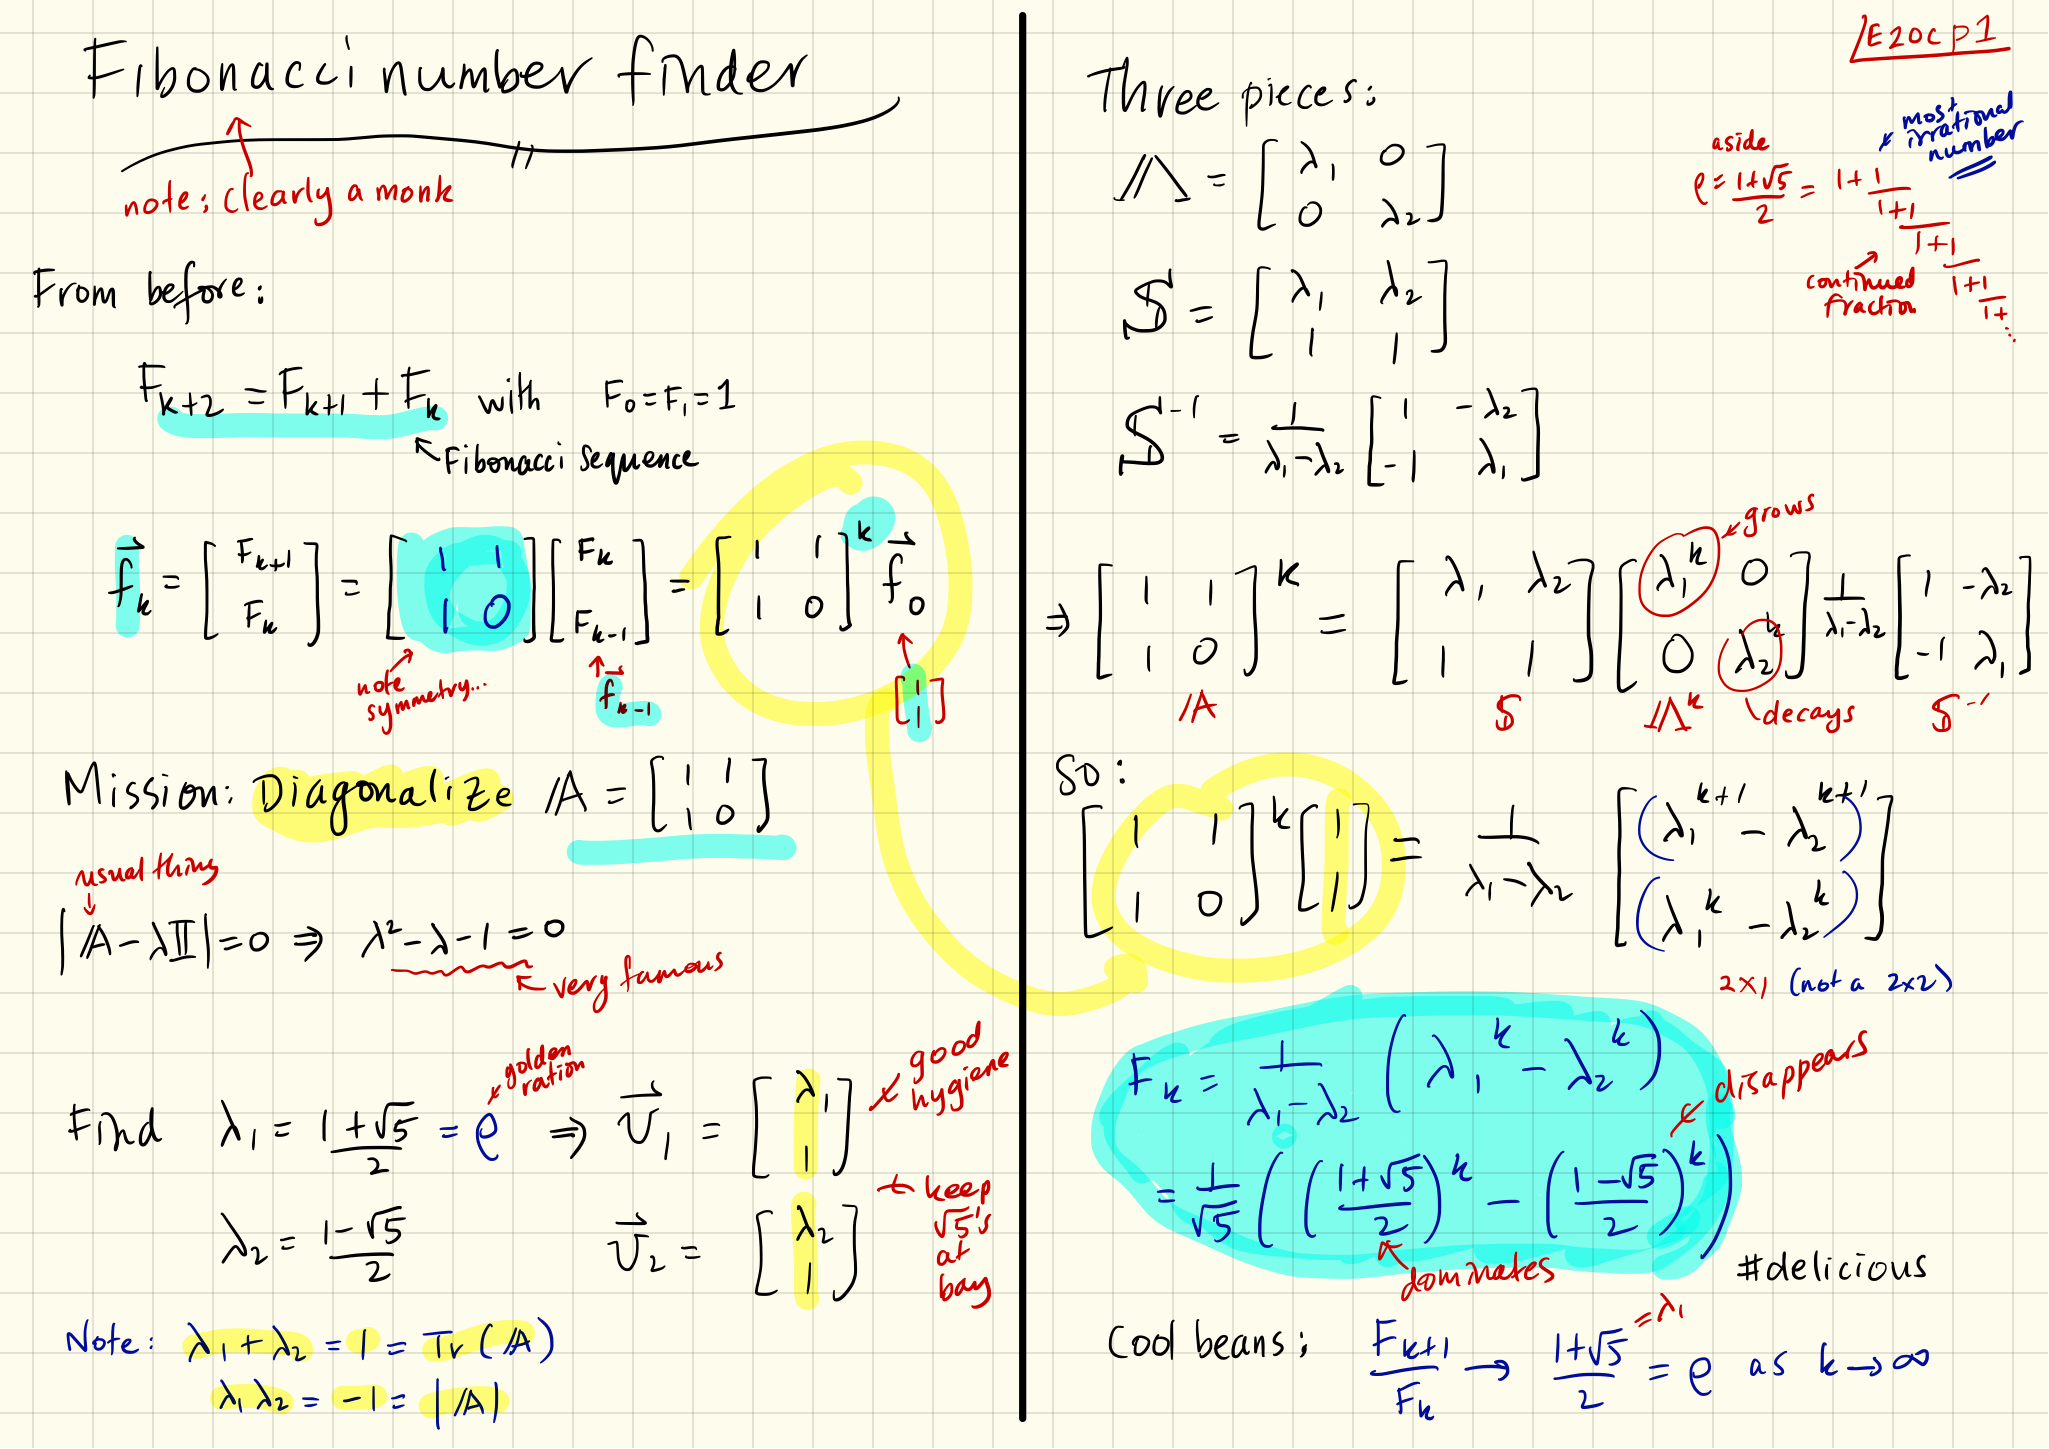 Fibonacci number finder
note: clearly a monk
From before:
F_{k+2} = F_{k+1} + F_k with F_0 = F_1 = 1
Fibonacci sequence
\vec{f}_k = [F_{k+1}; F_k] = [1 1; 1 0] [F_k; F_{k-1}] = [1 1; 1 0]^k \vec{f}_0
note symmetry...
\vec{f}_{k-1}
[1; 1]
Mission: Diagonalize A = [1 1; 1 0]
usual thing
|A - λI| = 0 ⇒ λ² - λ - 1 = 0
very famous
golden ration
Find λ_1 = (1+√5)/2 = ϱ ⇒ \vec{v}_1 = [λ_1; 1]
good hygiene
λ_2 = (1-√5)/2 \vec{v}_2 = [λ_2; 1]
keep
√5's
at
bay
Note: λ_1 + λ_2 = 1 = Tr(A)
λ_1 λ_2 = -1 = |A|
E20c p1
Three pieces:
Λ = [λ_1 0; 0 λ_2]
S = [λ_1 λ_2; 1 1]
S^{-1} = 1/(λ_1-λ_2) [1 -λ_2; -1 λ_1]
most
irrational
number
aside
ϱ = (1+√5)/2 = 1+1/(1+1/(1+1/(1+1/(1+...
continued
fraction
grows
⇒ [1 1; 1 0]^k = [λ_1 λ_2; 1 1] [λ_1^k 0; 0 λ_2^k] 1/(λ_1-λ_2) [1 -λ_2; -1 λ_1]
A S Λ^k decays S^{-1}
So:
[1 1; 1 0]^k [1; 1] = 1/(λ_1-λ_2) [(λ_1^{k+1} - λ_2^{k+1}); (λ_1^k - λ_2^k)]
2x1 (not a 2x2)
F_k = 1/(λ_1-λ_2) (λ_1^k - λ_2^k)
disappears
= 1/√5 (((1+√5)/2)^k - ((1-√5)/2)^k)
dominates
#delicious
Cool beans: F_{k+1}/F_k → (1+√5)/2 = ϱ as k → ∞
= λ_1